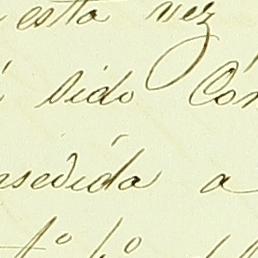 esta vez
sido Cón
nsedida a